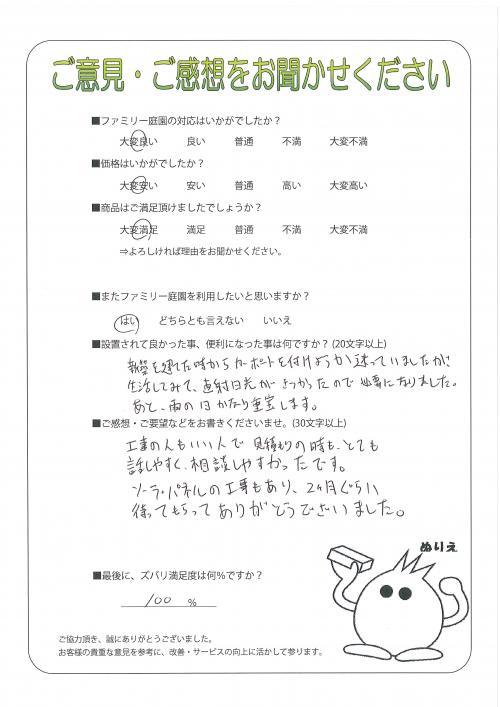 ご意見・ご感想をお聞かせください
■ファミリー庭園の対応はいかがでしたか？
大変良い 良い 普通 不満 大変不満
■価格はいかがでしたか？
大変安い 安い 普通 高い 大変高い
■商品はご満足頂けましたでしょうか？
大変満足 満足 普通 不満 大変不満
⇒よろしければ理由をお聞かせください。
■またファミリー庭園を利用したいと思いますか？
はい どちらとも言えない いいえ
■設置されて良かった事、便利になった事は何ですか？ (20文字以上)
新築を建てた時からカーポートを付けようか迷っていましたが
生活してみて、直射日光がきつかったので
あと、雨の日かなり重宝します。
■ご感想・ご要望などをお書きくださいませ。(30文字以上)
工事の人もいい人で 見積もりの時も、とても
話しやすく、相談しやすかったです。
ソーラーパネルの工事もあり、2ヶ月ぐらい
待ってもらって ありがとうございました。
ぬりえ
■最後に、ズバリ満足度は何％ですか？
100 ％
ご協力頂き、誠にありがとうございました。
お客様の貴重な意見を参考に、改善・サービスの向上に活かして参ります。